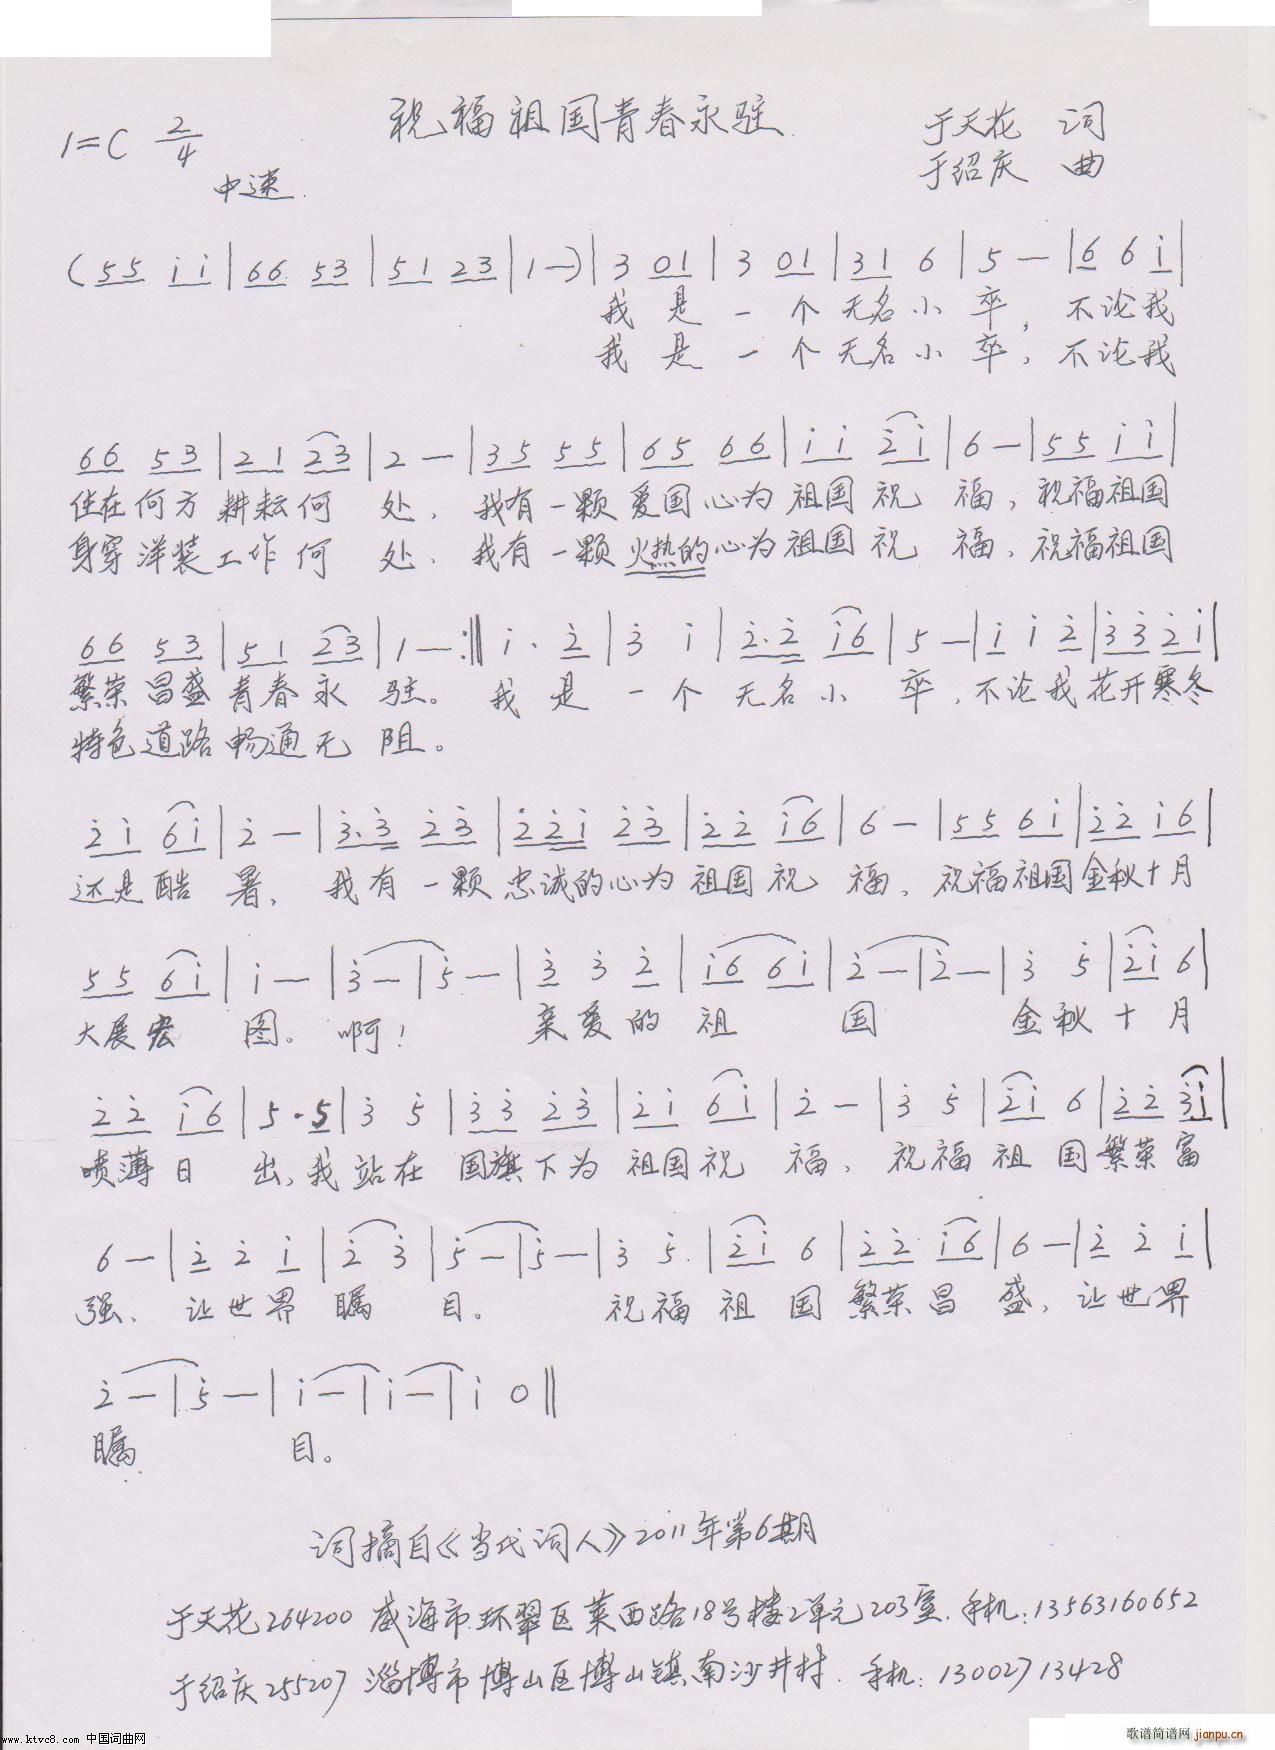 祝福祖国青春永驻
1=C 2/4
中速
于天花 词
于绍庆 曲
( 55 i i | 66 53 | 51 23 | 1 — ) | 3 01 | 3 01 | 31 6 | 5 — | 6 6 i |
我是一个无名小卒,不论我
我是一个无名小卒,不论我
66 53 | 21 23 | 2 — | 35 55 | 65 66 | i i 2̇ i | 6 — | 55 i i |
住在何方耕耘何处、我有一颗爱国心为祖国祝福,祝福祖国
身穿洋装工作何处、我有一颗火热的心为祖国祝福、祝福祖国
66 53 | 51 23 | 1 — :‖ i · 2̇ | 3̇ i | 2̇ · 2̇ i6 | 5 — | i i 2̇ | 3̇ 3̇ 2̇ i |
繁荣昌盛青春永驻。我是一个无名小卒,不论我花开寒冬
特色道路畅通无阻。
2̇ i 6 i | 2̇ — | 3̇ · 3̇ 2̇ 3̇ | 2̇ 2̇ i 2̇ 3̇ | 2̇ 2̇ i6 | 6 — | 55 6 i | 2̇ 2̇ i6 |
还是酷暑,我有一颗忠诚的心为祖国祝福、祝福祖国金秋十月
55 6 i | i — | 3̇ — | 5̇ — | 3̇ 3̇ 2̇ | i6 6 i | 2̇ — | 2̇ — | 3̇ 5̇ | 2̇ i 6 |
大展宏图。啊!亲爱的祖国金秋十月
2̇ 2̇ i6 | 5 · 5 | 3̇ 5̇ | 3̇ 3̇ 2̇ 3̇ | 2̇ i 6 i | 2̇ — | 3̇ 5̇ | 2̇ i 6 | 2̇ 2̇ 3̇ i |
喷薄日出,我站在国旗下为祖国祝福、祝福祖国繁荣富
6 — | 2̇ 2̇ i | 2̇ 3̇ | 5̇ — | 5̇ — | 3̇ 5̇ | 2̇ i 6 | 2̇ 2̇ i6 | 6 — | 2̇ 2̇ i |
强、让世界瞩目。祝福祖国繁荣昌盛,让世界
2̇ — | 5̇ — | i — | i — | i 0 ‖
瞩目。
词摘自《当代词人》2011年第6期
于天花264200 威海市环翠区莱西路18号楼2单元203室.手机:13563160652
于绍庆255207 淄博市博山区博山镇南沙井村.手机:13002713428
www.ktvc8.com 中国词曲网
歌谱简谱网 jianpu.cn